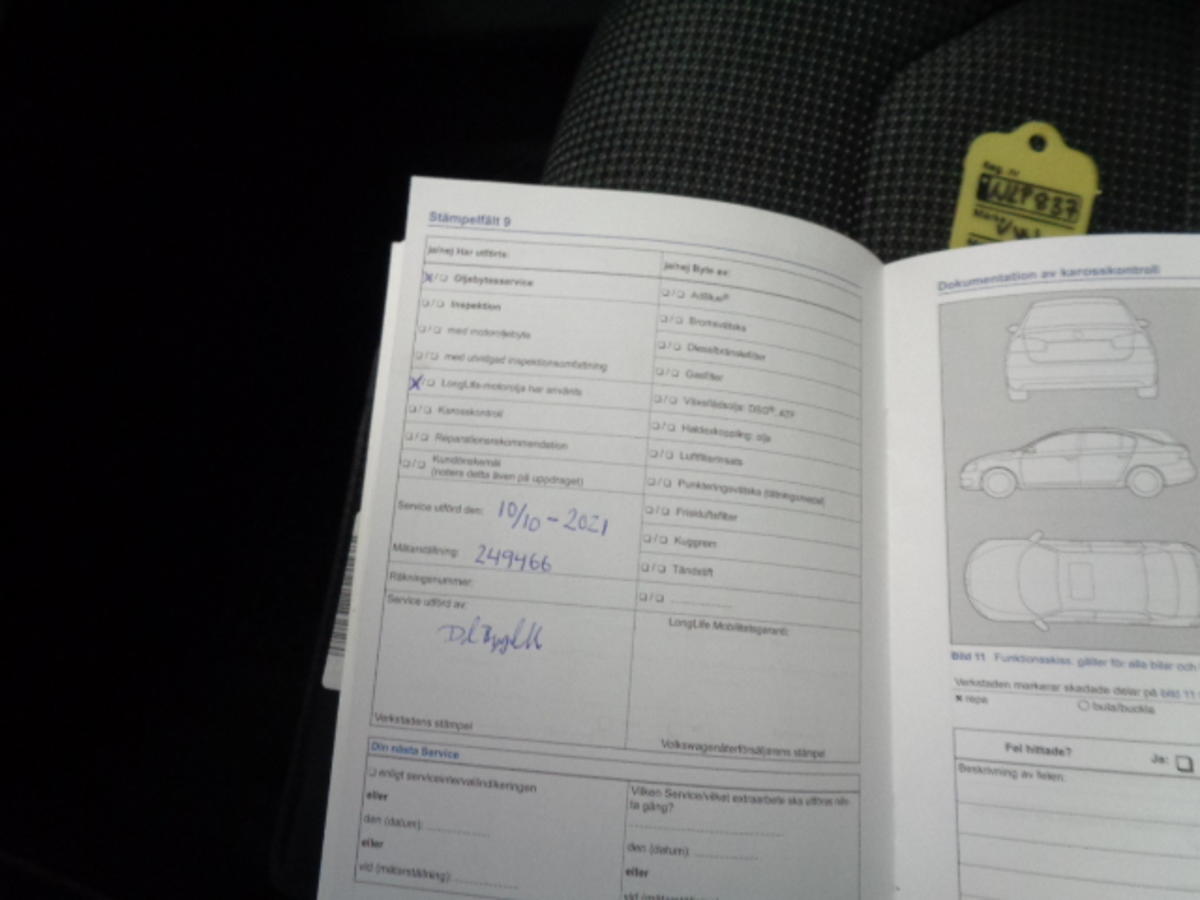 Stämpelfält 9
ja/nej Har utförts:
X/❑ Oljebytesservice
❑/❑ Inspektion
❑/❑ med motoroljebyte
❑/❑ med utvidgad inspektionsomfattning
X/❑ LongLife-motorolja har använts
❑/❑ Karosskontroll
❑/❑ Reparationsrekommendation
❑/❑ Kundönskemål
(notera detta även på uppdraget)
Service utförd den: 10/10-2021
Mätarställning: 249466
Räkningsnummer:
Service utförd av:
Verkstadens stämpel
ja/nej Byte av:
❑/❑ AdBlue®
❑/❑ Bromsvätska
❑/❑ Dieselbränslefilter
❑/❑ Gasfilter
❑/❑ Växellådsolja: DSG®, ATF
❑/❑ Haldexkoppling: olja
❑/❑ Luftfilterinsats
❑/❑ Punkteringsvätska (tätningsmedel)
❑/❑ Friskluftsfilter
❑/❑ Kuggrem
❑/❑ Tändstift
❑/❑ ..............
LongLife Mobilitetsgaranti:
Volkswagenåterförsäljarens stämpel
Din nästa Service
❑ enligt serviceintervallindikeringen
eller
den (datum): ..............
eller
vid (mätarställning): ..............
Vilken Service/vilket extraarbete ska utföras näs-
ta gång?
..............
den (datum): ..............
eller
vid (mätarställning):
Reg. nr
837
Dokumentation av karosskontroll
Bild 11 Funktionsskiss: gäller för alla bilar och
Verkstaden markerar skadade delar på bild 11
× repa ○ bula/buckla
Fel hittade? Ja: ❑
Beskrivning av felen: